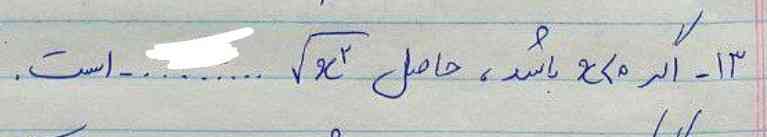 ۱۳- اگر x<۰ باشد، حاصل √x۲ .......... است.